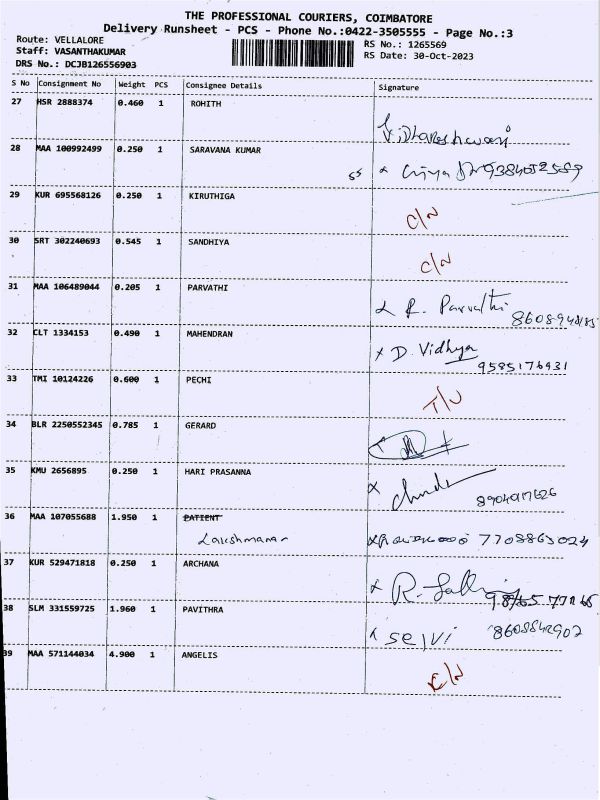 THE PROFESSIONAL COURIERS, COIMBATORE
Delivery Runsheet - PCS - Phone No.:0422-3505555 - Page No.:3
Route: VELLALORE
Staff: VASANTHAKUMAR
DRS No.: DCJB126556903
RS No.: 1265569
RS Date: 30-Oct-2023
S No Consignment No Weight PCS Consignee Details Signature
27 HSR 2888374 0.460 1 ROHITH
28 MAA 100992499 0.250 1 SARAVANA KUMAR
29 KUR 695568126 0.250 1 KIRUTHIGA C/N
30 SRT 302240693 0.545 1 SANDHIYA C/N
31 MAA 106489044 0.205 1 PARVATHI R. Parvathi
32 CLT 1334153 0.490 1 MAHENDRAN x D. Vidhya 9585176931
33 TMI 10124226 0.600 1 PECHI
34 BLR 2250552345 0.785 1 GERARD
35 KMU 2656895 0.250 1 HARI PRASANNA
36 MAA 107055688 1.950 1 PATIENT 7708863024
Lakshmanan
37 KUR 529471818 0.250 1 ARCHANA
38 SLM 331559725 1.960 1 PAVITHRA selvi 8608842902
39 MAA 571144034 4.900 1 ANGELIS